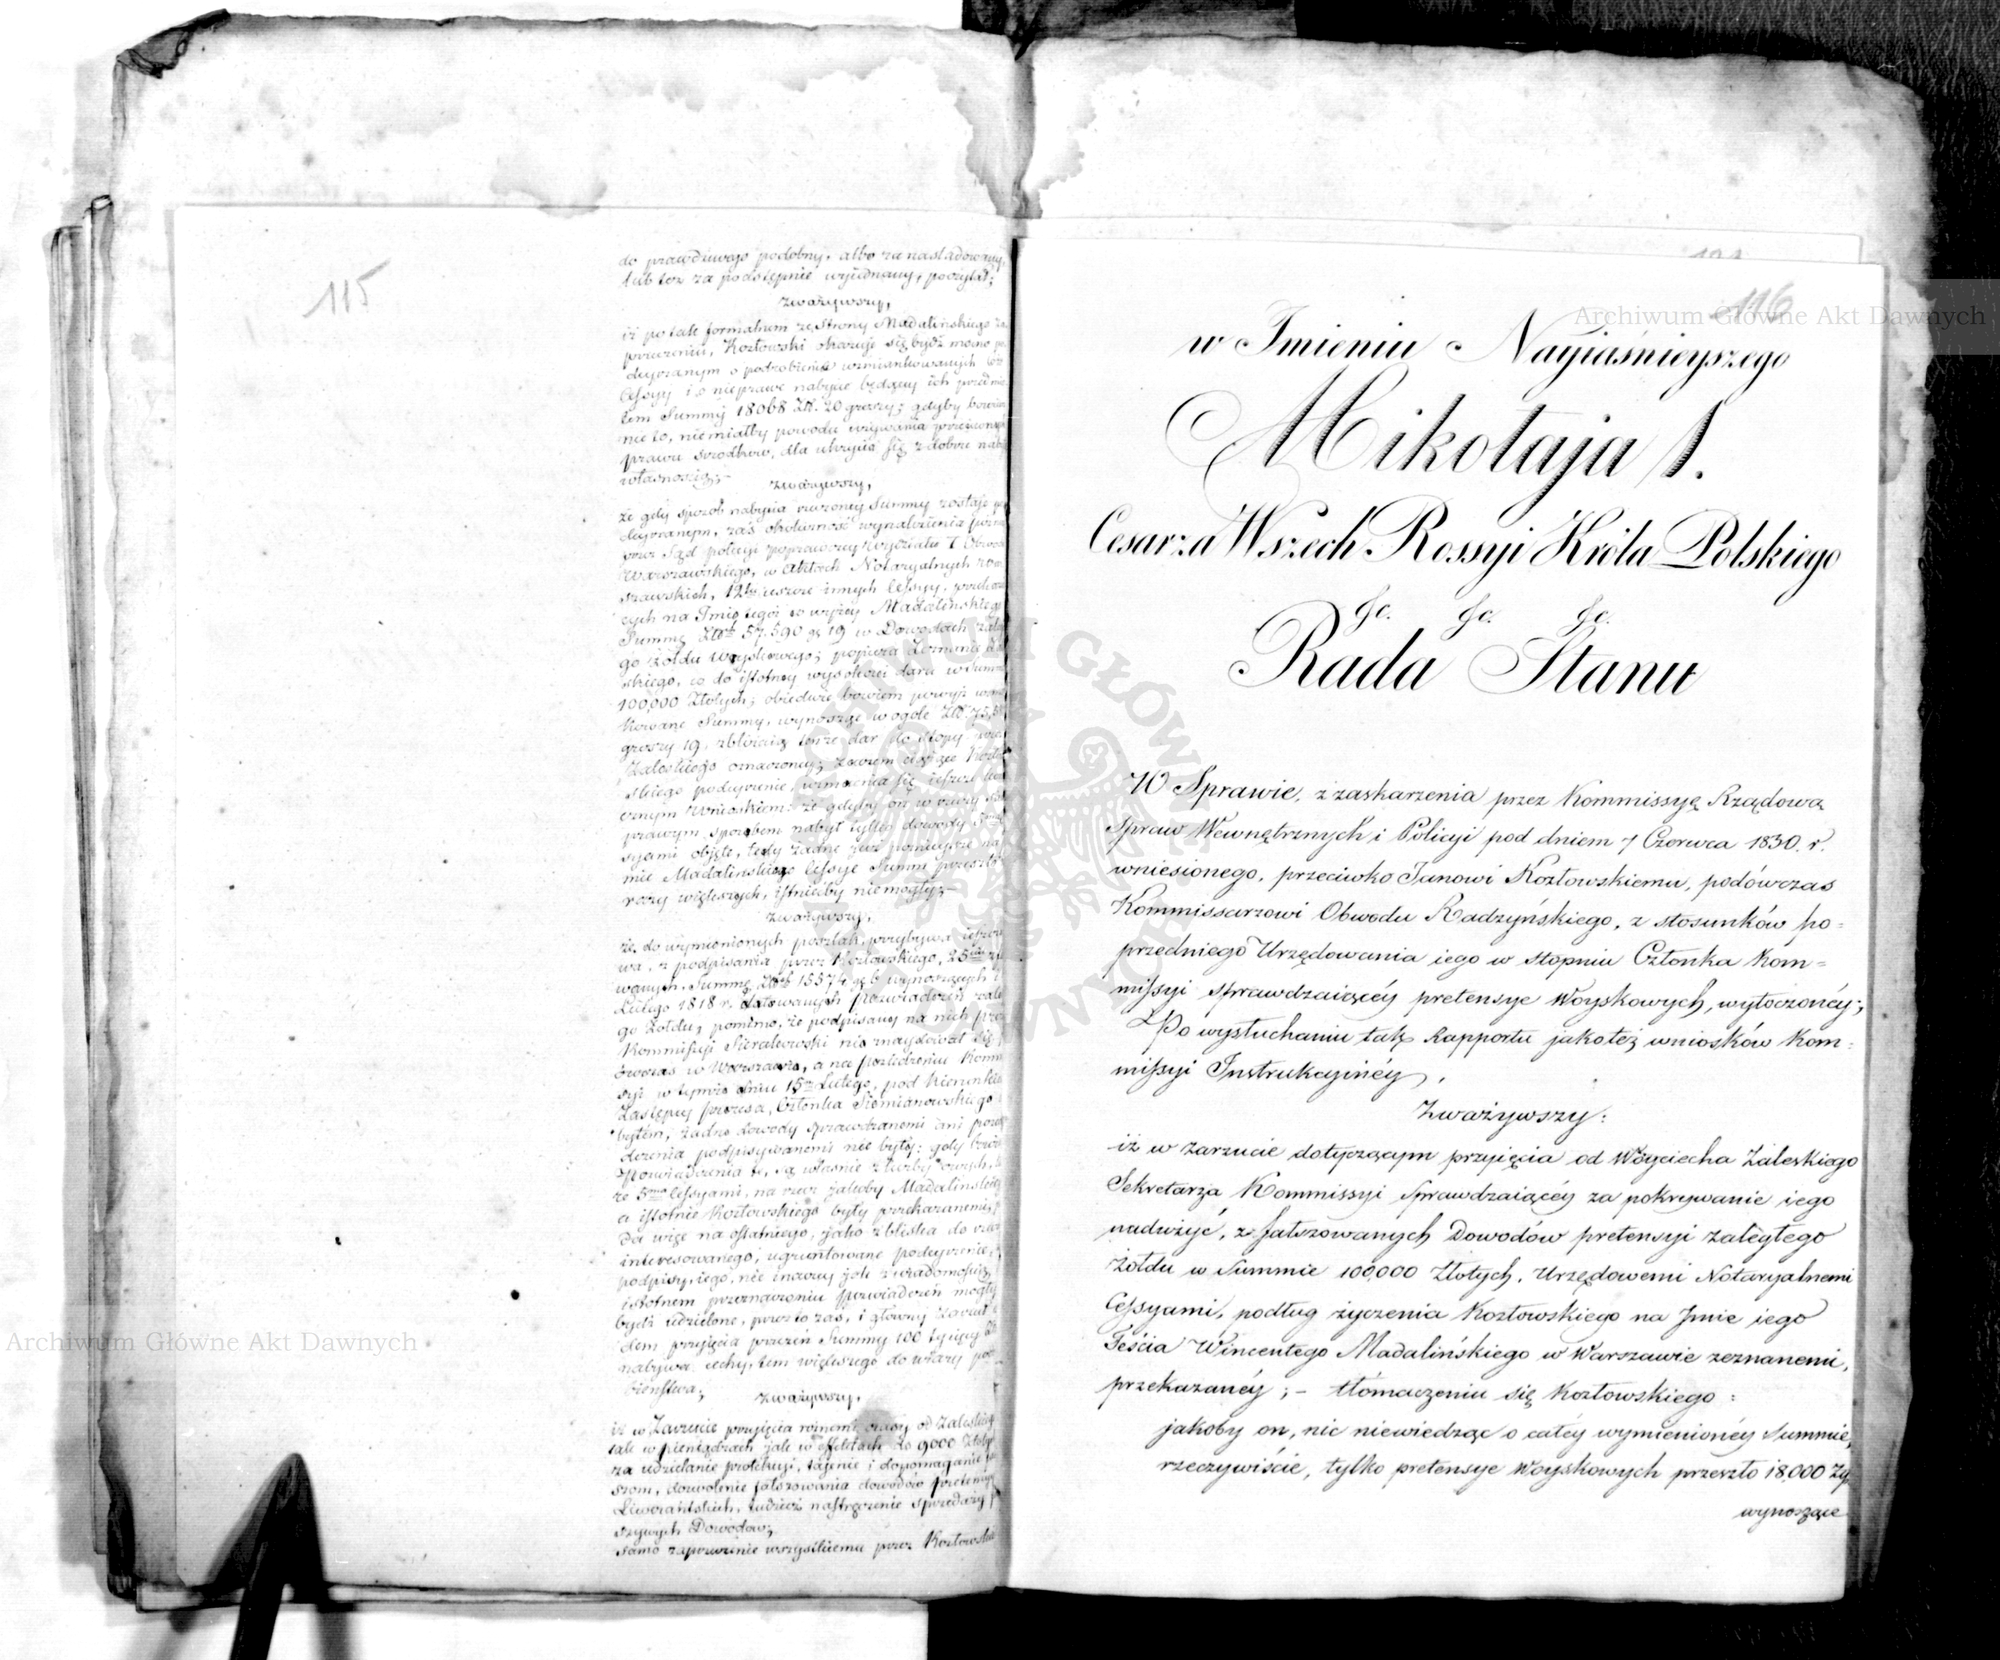 115
do prawdziwego podobny, albo za naśladowany,
lub też za podstępnie wyiednany, poczytał;
zważywszy,
iż po tak formalnem ze strony Madalińskiego za-
przeczeniu, Kozłowski okazuje się bydź mocno po-
dejrzanym o podrobienie wzmiankowanych
Cessyy i o nieprawe nabycie będącey ich przedmio-
tem Summy 18068 Zł. 20 groszy; gdyby bowiem
nie to, nie miałby powodu używania
prawu środków, dla ukrycia się z dobrze nabytą
własnością;
zważywszy,
że gdy sposób nabycia rzeczoney Summy zostaje po-
dejrzanym, zaś okoliczność wynalezienia
przez Sąd policyi poprawczey Wydziału I Obwodu
Warszawskiego, w Aktach Notaryalnych
szawskich, 12tu ieszcze innych Cessyy,
cych na Imie tegoż Madalińskiego
Summę Złot. 57.590 gr 19 w Dowodach zaległe-
go żołdu Woyskowego; popiera zeznanie Zale-
skiego, co do istotney wysokości daru w Summie
100,000 Złotych; obiedwie bowiem powyż wzmian-
kowane Summy, wynosząc w ogóle Złt.
groszy 19, zbliżaią tenże dar do stopy przez
Zaleskiego oznaczoney; zarazem ciążące Kozłow-
skiego podeyrzenie, wzmacnia się ieszcze
wnioskiem: że gdyby on w rzeczy samey
prawym sposobem nabył tylko dowody
syami objęte, tedy żadne już pomniejsze na I-
mie Madalińskiego Cessye Summ przeszło
razy większych, istniećby nie mogły;
zważywszy,
że do wymienionych poszlak, przybywa ieszcze
wa, z podpisania przez Kozłowskiego, 25ciu
wanych, Summę Złot 15574 gr 6 wynoszących
Lutego 1818 r. datowanych poświadczeń zaległe-
go żołdu; pomimo, że podpisany na nich Prezes
Kommissyi Sierakowski nie znaydował się
ówczas w Warszawie, a na posiedzeniu Kommis-
syi w tymże dniu 15m Lutego, pod kierunkiem
Zastępcy Prezesa, Członka Siemianowskiego
byłem, żadne dowody sprawdzanemi ani poświad-
czenia podpisywanemi nie były; gdy bowiem
Poświadczenia te, są właśnie z liczby owych,
że 5ma Cessyami, na rzecz jakoby Madalińskiego
a istotnie Kozłowskiego były przekazanemi,
Pa więc na ostatniego, jako zbliska do rzeczy
interesowanego, ugruntowane podeyrzenie,
podpisy iego, nie inaczey jak z wiadomością
istotnem przeznaczeniu poświadczeń mogły
bydź udzielone, przez to zaś, i główny zarzut
dem przyięcia przezeń Summy 100 tysięcy Zło
nabywa cechy, tem większego do wiary podo-
bieństwa;
zważywszy,
iż w Zarzucie przyięcia różnemi czasy od Zaleskiego
tak w pieniądzach jak w effektach do 9000 Złotych
za udzielanie protekcyi, tajenie i dopomaganie
szom, dozwolenie fałszowania dowodów pretensyi
Liwerantskich, tudzież nastręczenie sprzedaży
szywych Dowodów;
samo zaprzeczenie wszystkiemu przez Kozłowskie-
116
w Imieniu Nayiaśnieyszego
Mikołaja I.
Cesarza Wszech Rossyi Króla Polskiego
&c. &c. &c.
Rada Stanu
W Sprawie, z zaskarżenia przez Kommissyę Rządową
Spraw Wewnętrznych i Policyi pod dniem 7 Czerwca 1830. r.
wniesionego, przeciwko Janowi Kozłowskiemu, podówczas
Kommissarzowi Obwodu Radzyńskiego, z stosunków po-
przedniego Urzędowania iego w stopniu Członka Kom-
missyi sprawdzaiącéy pretensye Woyskowych, wytoczonéy;
Po wysłuchaniu tak Rapportu jakoteż wniosków Kom-
missyi Instrukcyiney,
Zważywszy:
iż w zarzucie dotyczącym przyięcia od Woyciecha Zaleskiego
Sekretarza Kommissyi Sprawdzaiącéy za pokrywanie iego
nadużyć, z fałszowanych Dowodów pretensyi zaległego
żołdu w Summie 100,000 Złotych, Urzędowemi Notaryalnemi
Cessyami, podług życzenia Kozłowskiego na Imie iego
Teścia Wincentego Madalińskiego w Warszawie zeznanemi,
przekazanéy; – tłómaczeniu się Kozłowskiego:
jakoby on, nic niewiedząc o całéy wymienionéy Summie,
rzeczywiście, tylko pretensye Woyskowych przeszło 18,000 Zp.
wynoszące
Archiwum Główne Akt Dawnych
Archiwum Główne Akt Dawnych